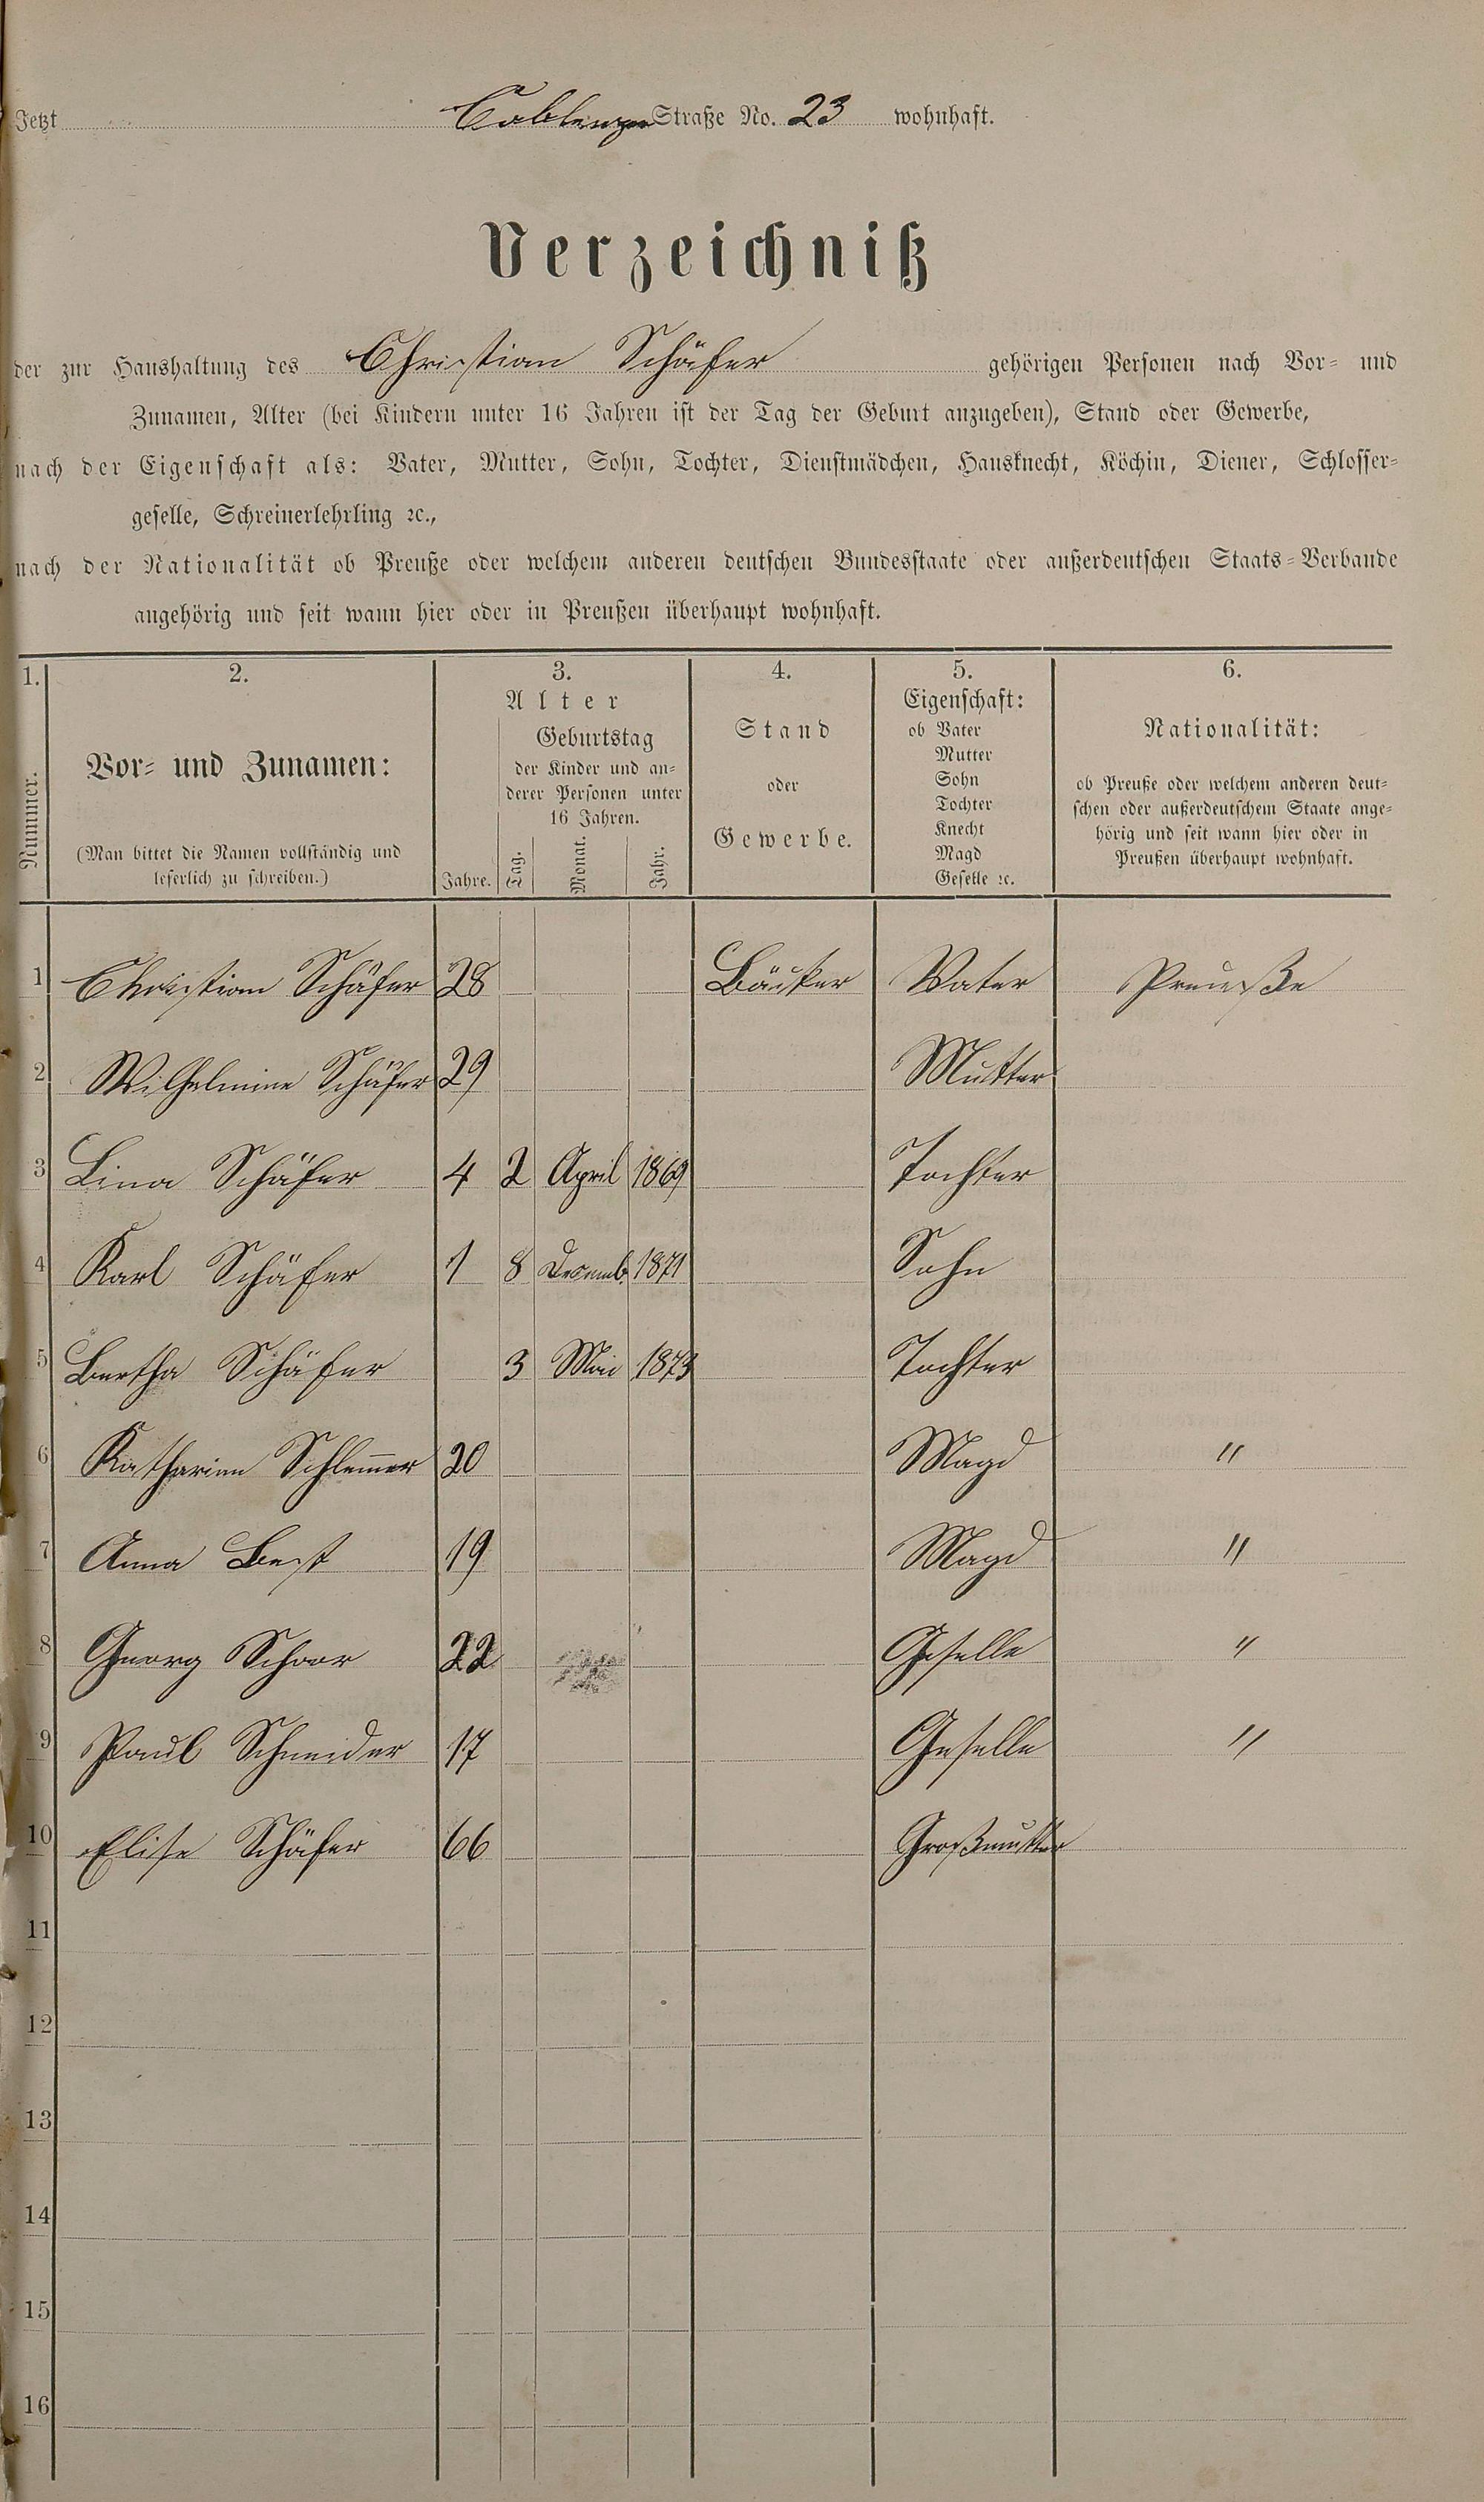 Jetzt Coblenzer Straße No. 23 wohnhaft.
Verzeichniß
der zur Haushaltung des Christian Schäfer gehörigen Personen nach Vor- und
Zunamen, Alter (bei Kindern unter 16 Jahren ist der Tag der Geburt anzugeben), Stand oder Gewerbe,
nach der Eigenschaft als: Vater, Mutter, Sohn, Tochter, Dienstmädchen, Hausknecht, Köchin, Diener, Schlosser-
geselle, Schreinerlehrling ꝛc.,
nach der Nationalität ob Preuße oder welchem anderen deutschen Bundesstaate oder außerdeutschen Staats-Verbande
angehörig und seit wann hier oder in Preußen überhaupt wohnhaft.
1. 2. 3. 4. 5. 6.
Nummer.
Vor- und Zunamen:
(Man bittet die Namen vollständig und
leserlich zu schreiben.)
Alter
Jahre.
Geburtstag
der Kinder und an-
derer Personen unter
16 Jahren.
Tag. Monat. Jahr.
Stand
oder
Gewerbe.
Eigenschaft:
ob Vater
Mutter
Sohn
Tochter
Knecht
Magd
Geselle ꝛc.
Nationalität:
ob Preuße oder welchem anderen deut-
schen oder außerdeutschem Staate ange-
hörig und seit wann hier oder in
Preußen überhaupt wohnhaft.
1 Christian Schäfer 28 Bäcker Vater Preuße
2 Wilhelmine Schäfer 29 Mutter
3 Lina Schäfer 4 2 April 1869 Tochter
4 Karl Schäfer 1 8 Decemb. 1871 Sohn
5 Bertha Schäfer 3 Mai 1873 Tochter
6 Katharina Schlem̅er 20 Magd "
7 Anna Best 19 Magd "
8 Georg Schoor 22 Geselle "
9 Paul Schneider 17 Geselle "
10 Elise Schäfer 66 Großmutter
11
12
13
14
15
16